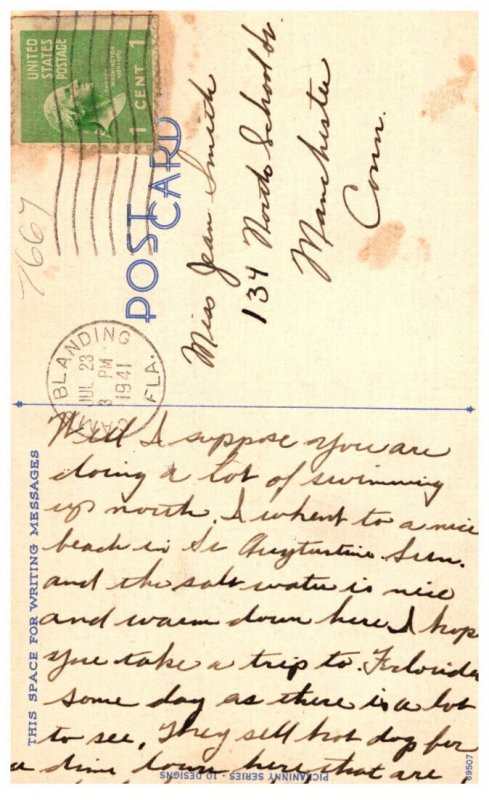 UNITED
STATES
POSTAGE
1 CENT 1
7667
POST
CARD
CAMP BLANDING
FLA.
JUL 23
3 PM
1941
Miss Jean Smith
134 North School St.
Manchester
Conn.
THIS SPACE FOR WRITING MESSAGES
Well I suppose you are
doing a lot of swimming
up north. I whent to a nice
beach in St Augtustine Sun.
and the salt water is nice
and warm down here I hop
you take a trip to Folorida
some day as there is a lot
to see. They sell hot dog for
a dime down here that are
PICKANINNY SERIES - 10 DESIGNS
69507